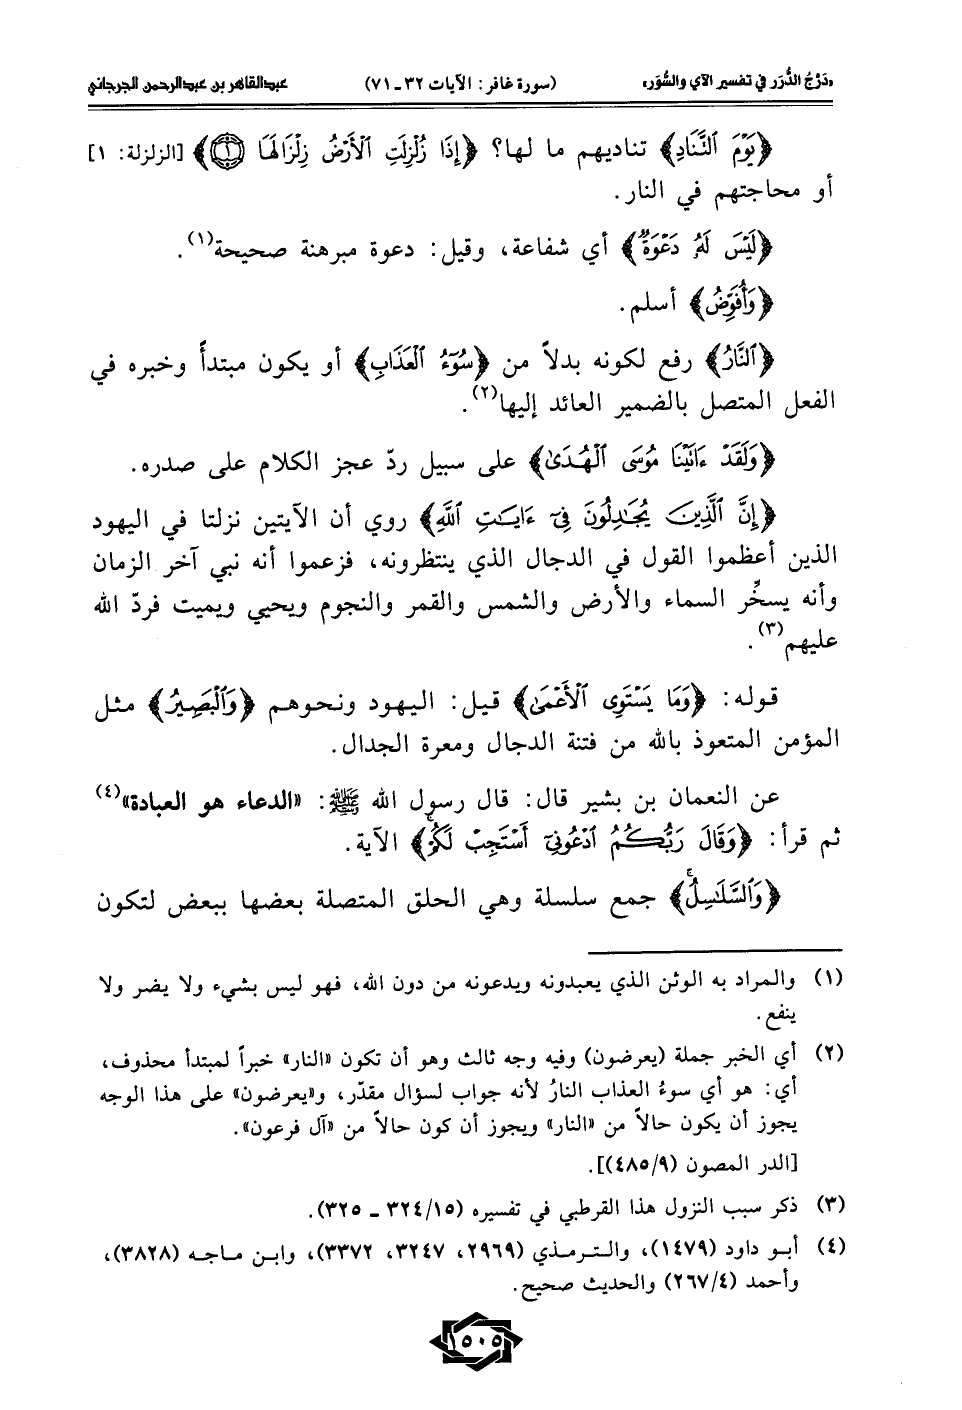 «دَرْجُ الدُّرَر في تفسير الآي والسُّوَر» (سورة غافر: الآيات ٣٢ـ٧١) عبدالقاهر بن عبدالرحمن الجرجاني
﴿يَوْمَ ٱلتَّنَادِ﴾ تناديهم ما لها؟ ﴿إِذَا زُلْزِلَتِ ٱلْأَرْضُ زِلْزَالَهَا ١﴾ [الزلزلة: ١]
أو محاجتهم في النار.
﴿لَيْسَ لَهُۥ دَعْوَةٌ﴾ أي شفاعة، وقيل: دعوة مبرهنة صحيحة(١).
﴿وَأُفَوِّضُ﴾ أسلم.
﴿ٱلنَّارُ﴾ رفع لكونه بدلاً من ﴿سُوٓءُ ٱلْعَذَابِ﴾ أو يكون مبتدأً وخبره في
الفعل المتصل بالضمير العائد إليها(٢).
﴿وَلَقَدْ ءَاتَيْنَا مُوسَى ٱلْهُدَىٰ﴾ على سبيل ردّ عجز الكلام على صدره.
﴿إِنَّ ٱلَّذِينَ يُجَٰدِلُونَ فِىٓ ءَايَٰتِ ٱللَّهِ﴾ روي أن الآيتين نزلتا في اليهود
الذين أعظموا القول في الدجال الذي ينتظرونه، فزعموا أنه نبي آخر الزمان
وأنه يسخِّر السماء والأرض والشمس والقمر والنجوم ويحيي ويميت فردّ الله
عليهم(٣).
قوله: ﴿وَمَا يَسْتَوِى ٱلْأَعْمَىٰ﴾ قيل: اليهود ونحوهم ﴿وَٱلْبَصِيرُ﴾ مثل
المؤمن المتعوذ بالله من فتنة الدجال ومعرة الجدال.
عن النعمان بن بشير قال: قال رسول الله ﷺ: «الدعاء هو العبادة»(٤)
ثم قرأ: ﴿وَقَالَ رَبُّكُمُ ٱدْعُونِىٓ أَسْتَجِبْ لَكُمْ﴾ الآية.
﴿وَٱلسَّلَٰسِلُ﴾ جمع سلسلة وهي الحلق المتصلة بعضها ببعض لتكون
(١) والمراد به الوثن الذي يعبدونه ويدعونه من دون الله، فهو ليس بشيء ولا يضر ولا
ينفع.
(٢) أي الخبر جملة (يعرضون) وفيه وجه ثالث وهو أن تكون «النار» خبراً لمبتدأ محذوف،
أي: هو أي سوءُ العذاب النارُ لأنه جواب لسؤال مقدّر، و«يعرضون» على هذا الوجه
يجوز أن يكون حالاً من «النار» ويجوز أن كون حالاً من «آل فرعون».
[الدر المصون (٩/٤٨٥)].
(٣) ذكر سبب النزول هذا القرطبي في تفسيره (١٥/٣٢٤ ـ ٣٢٥).
(٤) أبو داود (١٤٧٩)، والترمذي (٢٩٦٩، ٣٢٤٧، ٣٣٧٢)، وابن ماجه (٣٨٢٨)،
وأحمد (٤/٢٦٧) والحديث صحيح.
١٥٠٥